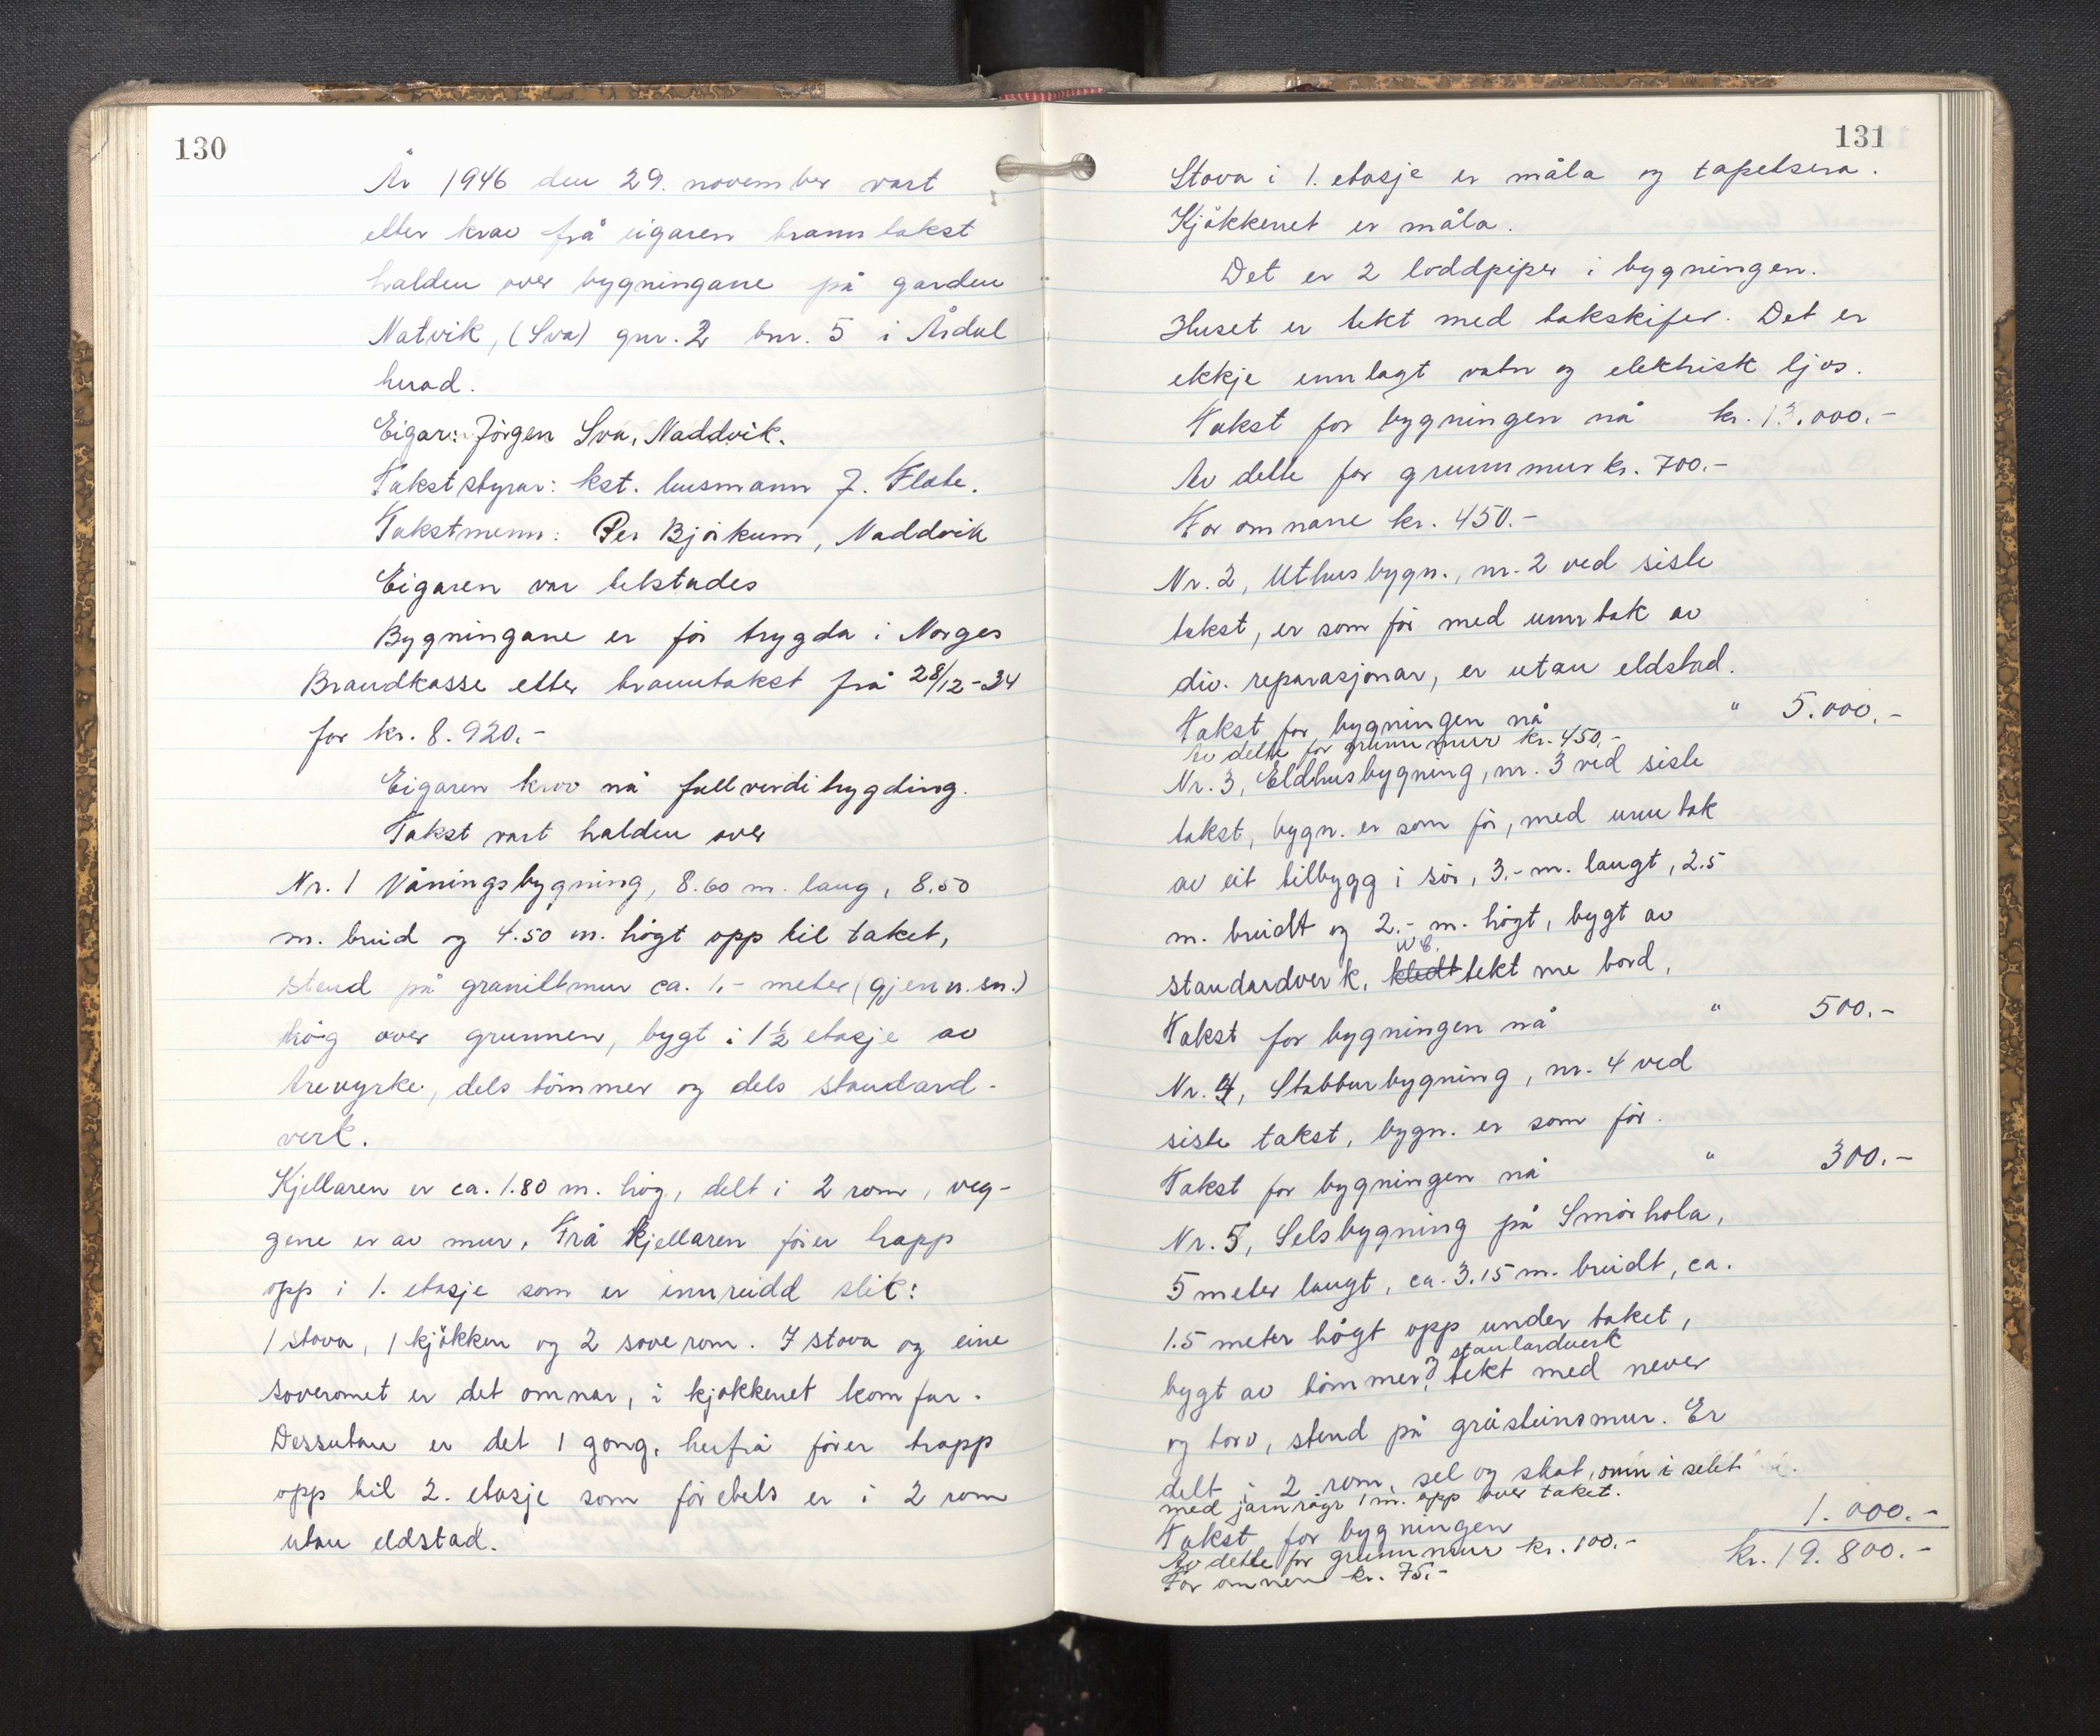 130
År 1946 den 29. november vart
etter krav frå eigaren branntakst
halden over bygningane på garden
Natvik, (Sva) gnr. 2 bnr. 5 i Årdal
herad.
Eigar: Jörgen Sva, Naddvik.
Takststyrar: kst. lensmann J. Flate.
Takstmenn: Per Bjørkum, Naddvik
Eigaren var tilstades
Bygningane er för trygda i Norges
Brandkasse etter branntakst frå 28/12-34
for kr. 8.920.-
Eigaren krev nå fullverditrygding.
Takst vart halden over
Nr. 1 Våningsbygning, 8.60 m. lang, 8.50
m. breid og 4.50 m. högt opp til taket,
stend på granittmur ca. 1.- meter (gjenn.sn.)
hög over grunnen, bygt i 1½ etasje av
trevyrke, dels tömmer og dels standard-
verk.
Kjellaren er ca. 1.80 m. hög, delt i 2 rom, veg-
gene er av mur. Frå kjellaren förer trapp
opp i 1. etasje som er innreidd slik:
1 stova, 1 kjökken og 2 soverom. I stova og eine
soveromet er det omnar, i kjökkenet komfur.
Dessutan er det 1 gang, herfrå förer trapp
opp til 2. etasje som förebels er i 2 rom
utan eldstad.
131
Stova i 1. etasje er måla og tapetsera.
Kjökkenet er måla.
Det er 2 loddpiper i bygningen.
Huset er tekt med takskifer. Det er
ikkje innlagt vatn og elektrisk ljos.
Takst for bygningen nå kr. 13.000.-
Av dette for grunnmur kr. 700.-
For omnane kr. 450.-
Nr. 2, Uthusbygn., nr. 2 ved siste
takst, er som för med unntak av
div. reparasjonar, er utan eldstad.
Takst for bygningen nå " 5.000.-
Av dette for grunnmur kr. 450.-
Nr. 3, Eldhusbygning, nr. 3 ved siste
takst, bygn. er som för, med unntak
av eit tilbygg i sör, 3.- m. langt, 2.5
m. breidt og 2.- m. högt, bygt av
standardverk, kledt tekt me bord,
Takst for bygningen nå " 500.-
Nr. 4, Stabburbygning, nr. 4 ved
siste takst, bygn. er som för.
Takst for bygningen nå " 300.-
Nr. 5, Selsbygning på Smörhola,
5 meter langt, ca. 3.15 m. breidt, ca.
1.5 meter högt opp under taket,
standardverk
bygt av tömmer og tekt med never
og torv, stend på gråsteinsmur. Er
delt i 2 rom, sel og skot, omn i selet
med jarnrögr 1 m. opp over taket.
Takst for bygningen 1.000.-
Av dette for grunnmur kr. 100.- kr. 19.800.-
For omnen kr. 75.-